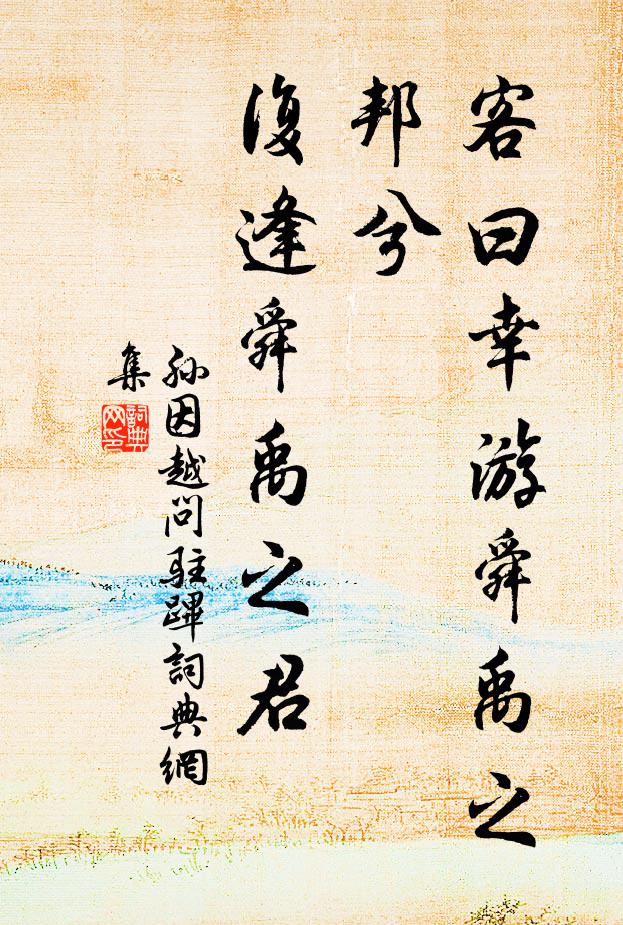 客曰幸游舜禹之
邦兮
復逢舜禹之君
孙因越问駐蹕詞典網
集
詞典
网印